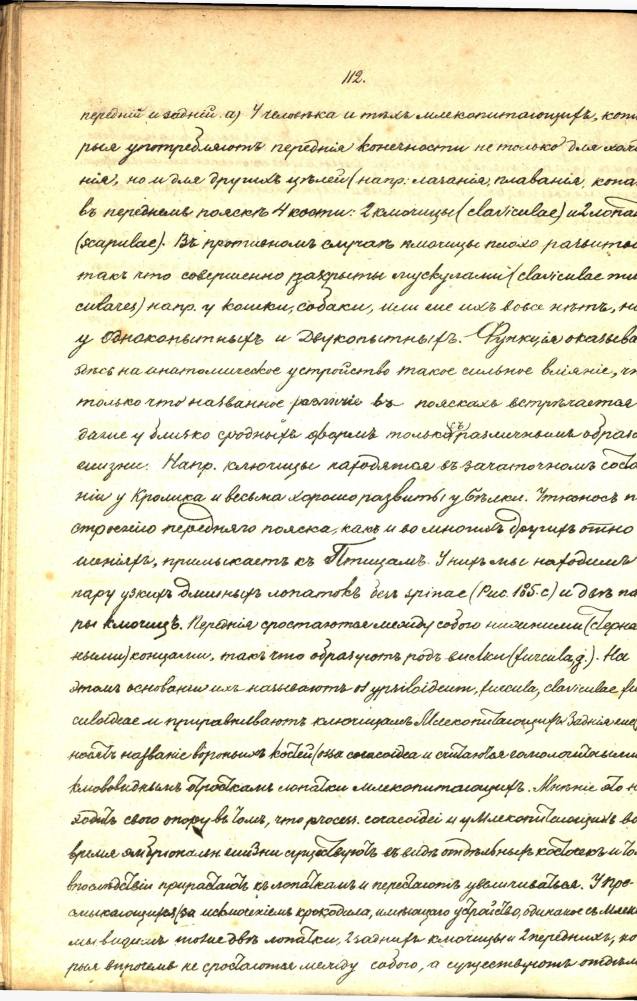 112.
передній и задній. а) У человѣка и тѣхъ млекопитающихъ, кото
рыя употребляютъ переднія конечности не только для хож
нія, но и для другихъ цѣлей (напр. лазанія, плаванія, копа
въ переднемъ пояскѣ 4 кости: 2 ключицы (claviculae) и 2 лопат
(scapulae). Въ противномъ случаѣ ключицы плохо развиты
такъ что совершенно закрыты мускулами (claviculae mus
culares) напр. у кошки, собаки, или же ихъ вовсе нѣтъ, на
у однокопытныхъ и двукопытныхъ. Функція оказыва
здѣсь на анатомическое устройство такое сильное вліяніе, чт
только что названное различіе въ пояскахъ встрѣчается
даже у близко сродныхъ формъ только съ различнымъ образо
жизни. Напр. ключицы находятся въ зачаточномъ состо
ніи у Кролика и весьма хорошо развиты у бѣлки. Утконосъ п
строенію передняго пояска, какъ и во многихъ другихъ отно
шеніяхъ, примыкаетъ къ Птицамъ. У нихъ мы находимъ
пару узкихъ длинныхъ лопатокъ безъ spinae (Рис. 165.c) и двѣ па
ры ключицъ. Переднія сростаются между собою нижними (стерна
ными) концами, такъ что образуютъ родъ вилки (furcula, g.). На
этомъ основаніи ихъ называютъ os ypsiloideum, furcula, claviculae fur
culoideae и приравниваютъ ключицамъ Млекопитающихъ. Заднія
ностъ названіе вороньихъ костей (ossa coracoidea и считаются гомологичными
клювовиднымъ отросткамъ лопатки млекопитающихъ. Мнѣніе это н
ходитъ свою опору въ томъ, что process. coracoidei и у Млекопитающихъ во
время эмбріональн жизни существуютъ въ видѣ отдѣльныхъ косточекъ и
впослѣдствіи прирастаютъ къ лопаткамъ и перестаютъ увеличиваться. У Пре
смыкающихся (за исключеніемъ крокодила, имѣющаго устройство, одинакое съ Млеко
мы видимъ тоже двѣ лопатки, 2 заднихъ ключицы и 2 переднихъ, ко
рыя впрочемъ не сростаются между собою, а существуютъ отдѣль